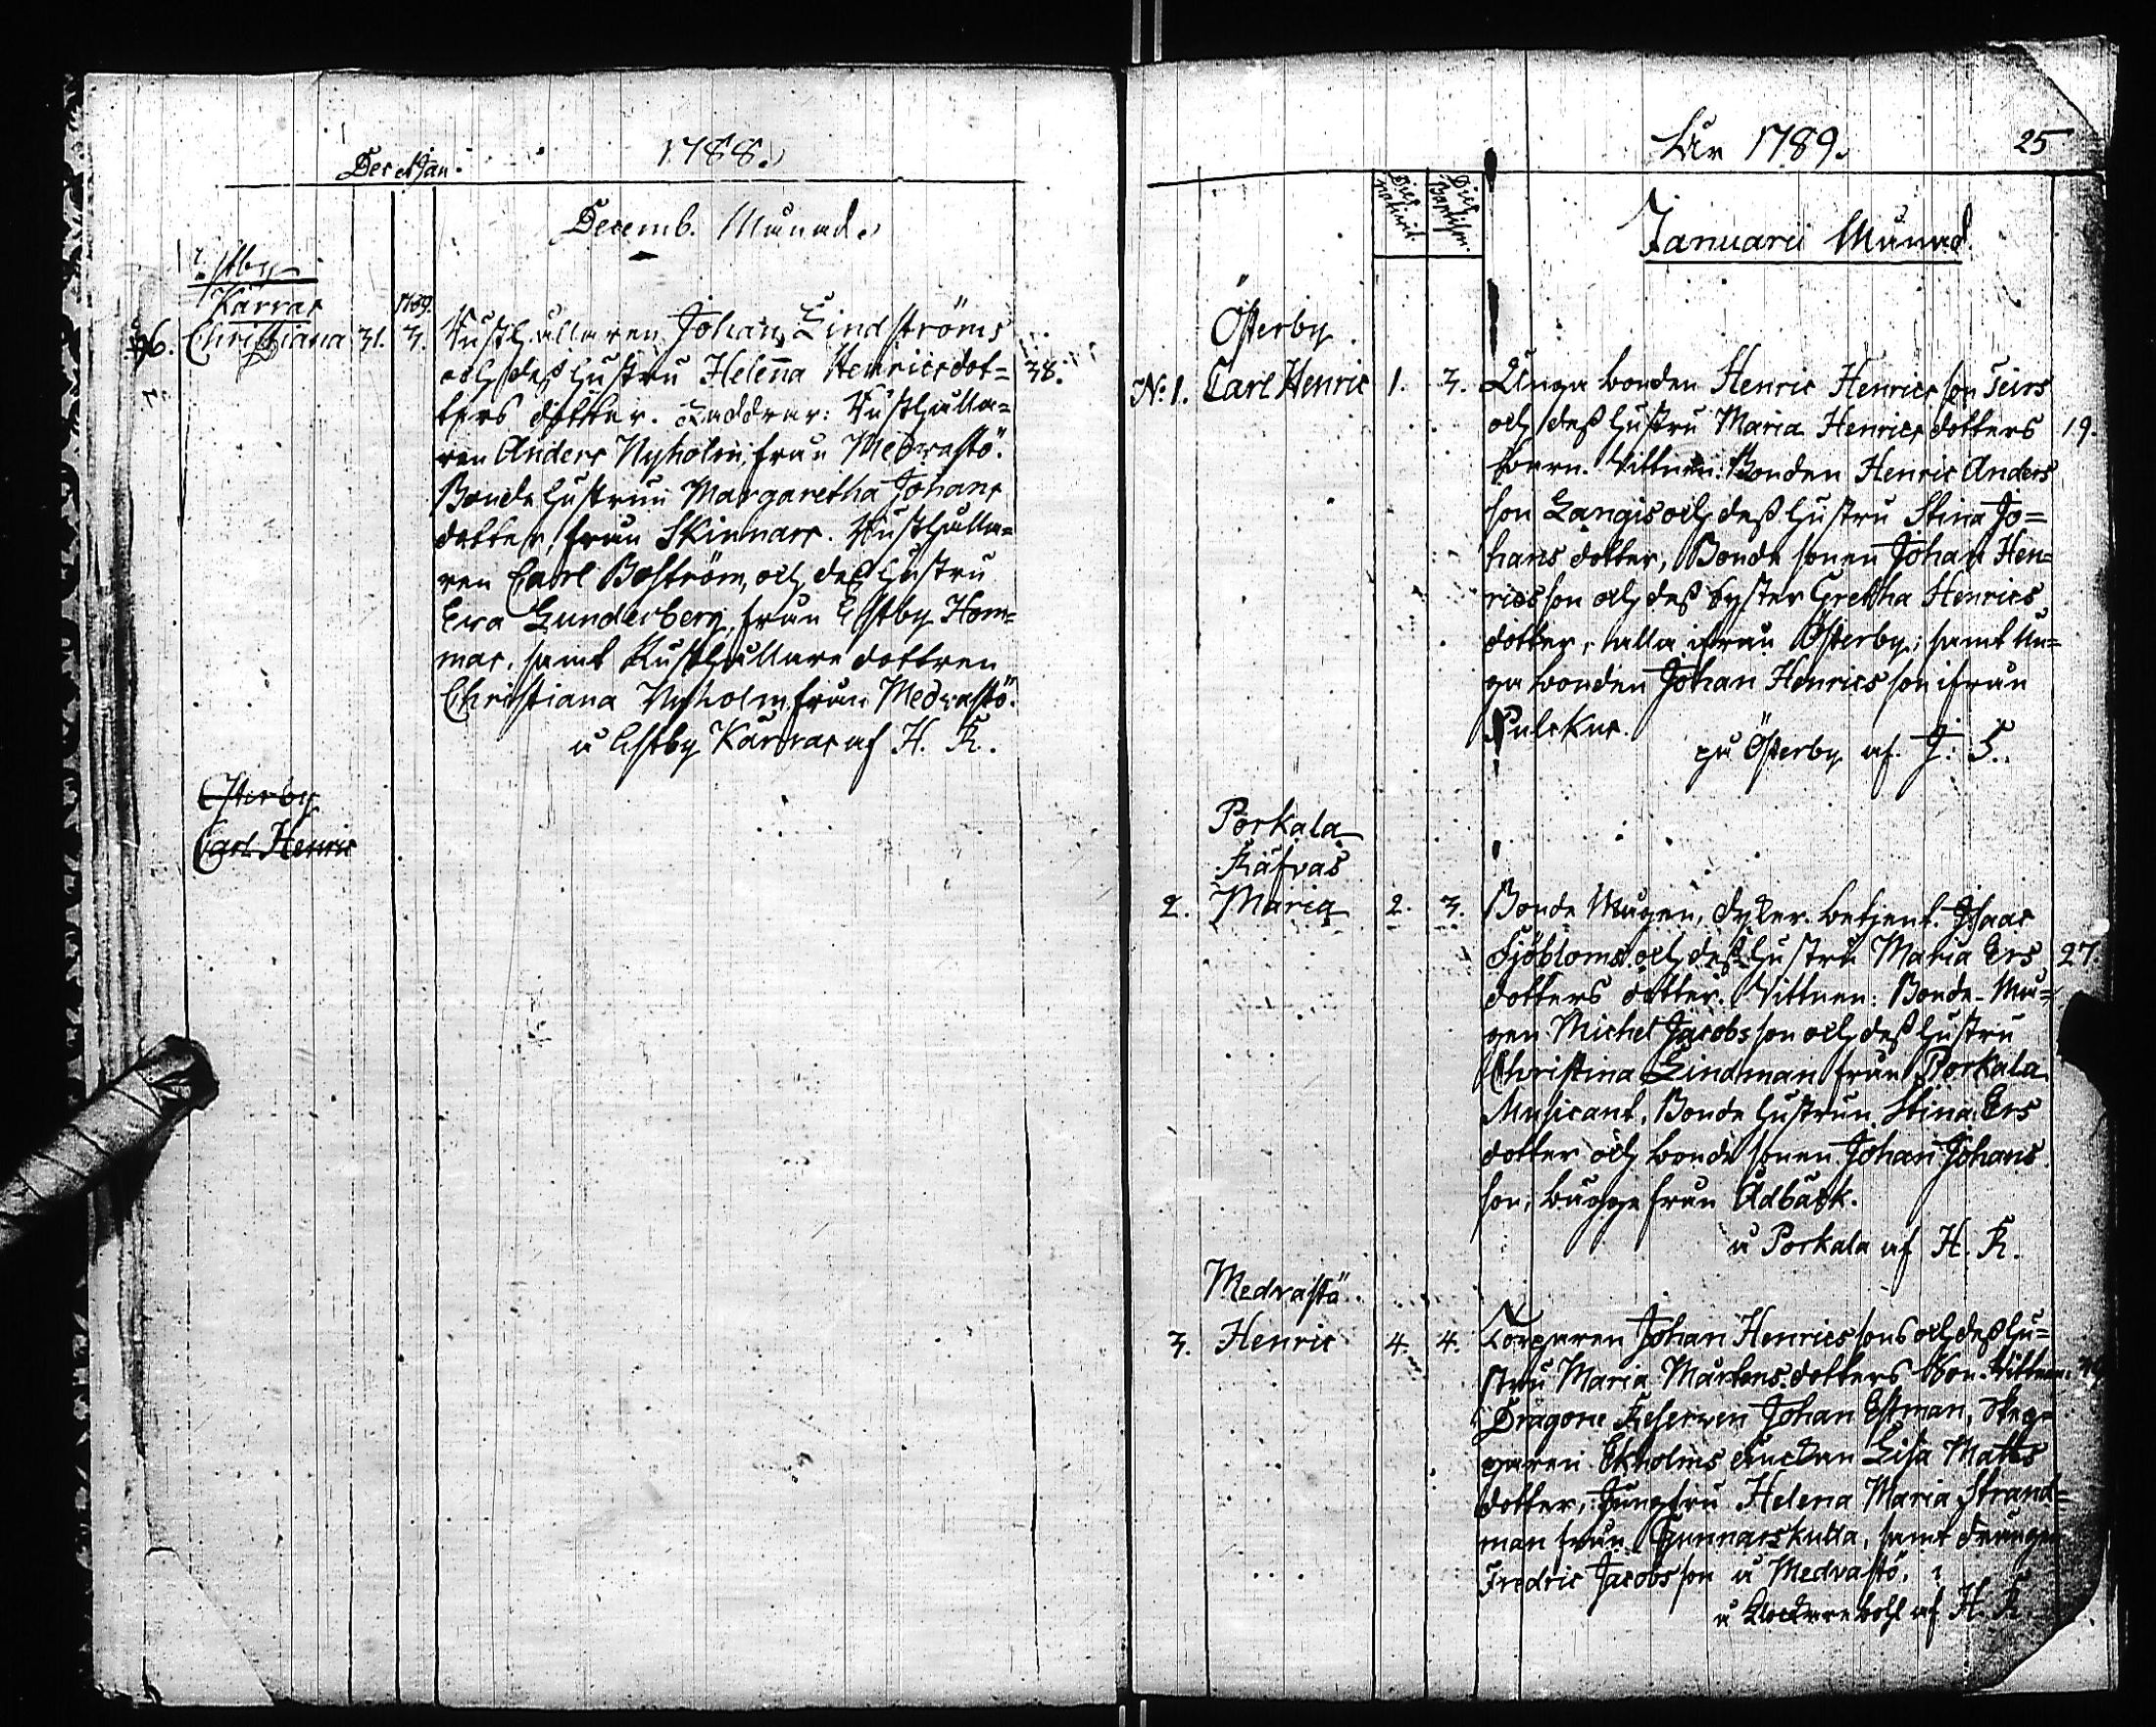 1788.
Dec et Jan.
Decemb. Månad.
Estby
Karrar
1789.
96. Christiana 31. 3. Rusth.ållaren Johan Lindströms
och dess hustru Helena Henricsdot= 38.
ters dotter. Faddrar: Rusthålla=
ren Anders Nyholm, från Medvastö.
Bonde hustrun Margaretha Johans
dotter, från Skinnars. Rusthålla=
ren Carl Boström, och dess hustru
Eva Lunderberg, från Estby Hom=
mas, samt Rusthållare dottren
Christiana Nyholm från Medvastö.
å Estby Karrar af H. K.
Österby
Carl Henric
År 1789. 25
Dies Nativit. Dies Baptism.
Januarii Månad.
Österby
No. 1. Carl Henric 1. 3. Unga bonden Henric Henrics son
och dess hustru Maria Henrics dotters 19.
barn. Vittnen: Bonden Henric Anders
son Långis och dess hustru Stina Jo=
hans dotter, Bonde sonen Johan Hen=
rics son och dess syster Gretha Henrics
dotter, alla ifrån Österby; samt un=
ga bonden Johan Henrics son ifrån
på Österby af J. F.
Porkala
Räfvas
2. Maria 2. 3. Bonde Mågen, betjent. Isaac
Sjöbloms och dess hustru Maria Ers 27
dotters dotter. Vittnen: Bonde-Må=
gen Michel Jacobs son och dess hustru
Christina Lindman från Porkala
Musicant, Bonde hustrun Stina Ers
dotter och bonde sonen Johan Johans
son, begge från Adbäck.
å Porkala af H. K.
Medvastö.
3. Henric 4. 4. Torparen Johan Henrics sons och dess hu=
stru Maria Mårtens dotters Son. Vittnen:
Dragone Reserven Johan Estman,
Ekholms Enckan Lisa Matts
dotter, Jungfru Helena Maria Strand=
man från Gunnarskulla, samt Drängen
Fredric Jacobs son å Medvastö.
å Klockarebohl af H. K.